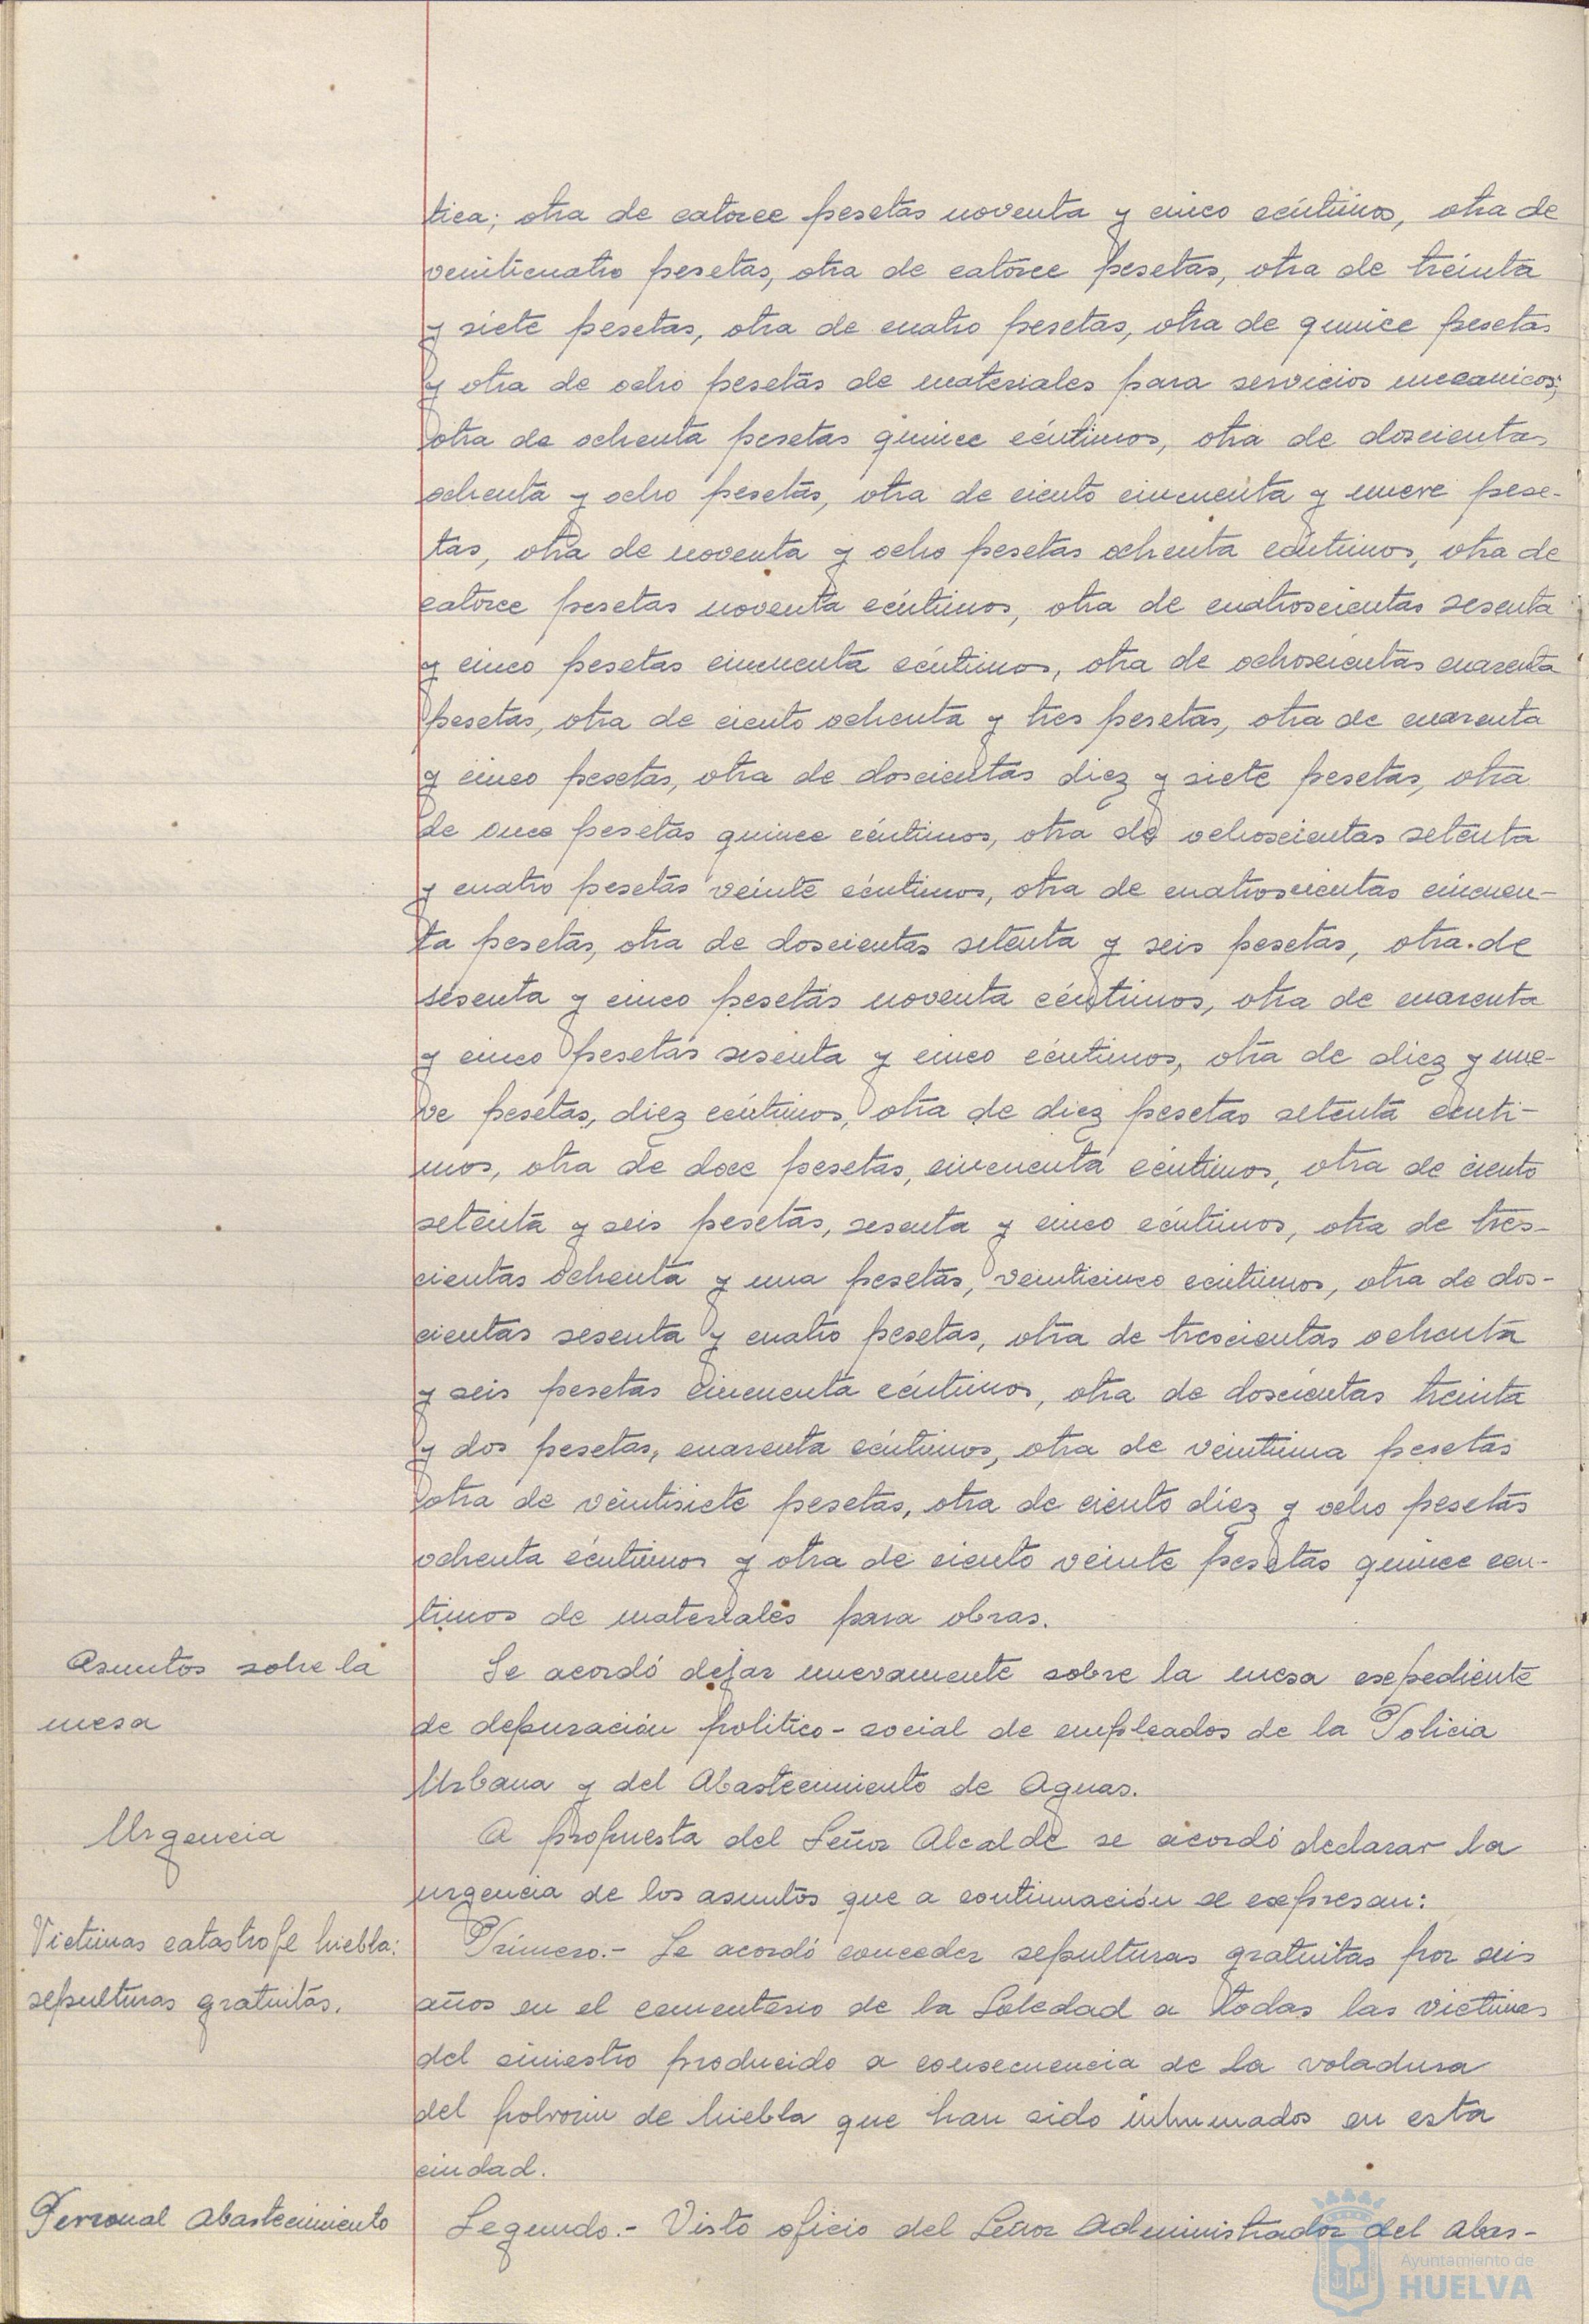 tica; otra de catorce pesetas noventa y cinco céntimos, otra de
veinticuatro pesetas, otra de catorce pesetas, otra de treinta
y siete pesetas, otra de cuatro pesetas, otra de quince pesetas
y otra de ocho pesetas de materiales para servicios mecanicos;
otra de ochenta pesetas quince céntimos, otra de doscientas
ochenta y ocho pesetas, otra de ciento cincuenta y nueve pese-
tas, otra de noventa y ocho pesetas ochenta céntimos, otra de
catorce pesetas noventa céntimos, otra de cuatroscientas sesenta
y cinco pesetas cincuenta céntimos, otra de ochoscientas cuarenta
pesetas, otra de ciento ochenta y tres pesetas, otra de cuarenta
y cinco pesetas, otra de doscientas diez y siete pesetas, otra
de once pesetas quince céntimos, otra de ochoscientas setenta
y cuatro pesetas veinte céntimos, otra de cuatroscientas cincuen-
ta pesetas, otra de doscientas setenta y seis pesetas, otra de
sesenta y cinco pesetas noventa céntimos, otra de cuarenta
y cinco pesetas sesenta y cinco céntimos, otra de diez y nue-
ve pesetas, diez céntimos, otra de diez pesetas setenta cénti-
mos, otra de doce pesetas, cincuenta céntimos, otra de ciento
setenta y seis pesetas, sesenta y cinco céntimos, otra de tres-
cientas ochenta y una pesetas, veinticinco centimos, otra de dos-
cientas sesenta y cuatro pesetas, otra de trescientas ochenta
y seis pesetas cincuenta céntimos, otra de doscientas treinta
y dos pesetas, cuarenta céntimos, otra de veintiuna pesetas
otra de veintisiete pesetas, otra de ciento diez y ocho pesetas
ochenta céntimos y otra de ciento veinte pesetas quince cen-
timos de materiales para obras.
Asuntos sobre la
mesa
Se acordó dejar nuevamente sobre la mesa expediente
de depuración politico-social de empleados de la Policia
Urbana y del Abastecimiento de Aguas.
Urgencia
A propuesta del Señor Alcalde se acordó declarar la
urgencia de los asuntos que a continuación se expresan:
Victimas catastrofe Niebla:
sepulturas gratuitas.
Primero.- Se acordó conceder sepulturas gratuitas por seis
años en el cementerio de la Soledad a todas las victimas
del siniestro producido a consecuencia de la voladura
del polvorin de Niebla que han sido inhumados en esta
ciudad.
Personal Abastecimiento
Segundo.- Visto oficio del Señor Administrador del Abas-
Ayuntamiento de
HUELVA